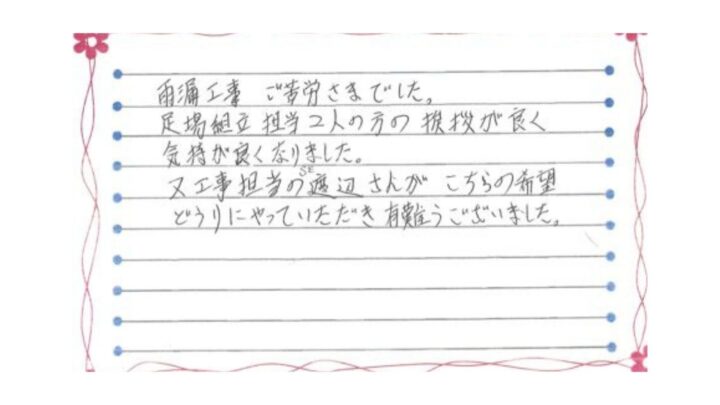 雨漏工事 ご苦労さまでした。
足場組立担当2人の方の挨拶が良く
気持が良くなりました。
又工事担当のSE渡辺さんがこちらの希望
どうりにやっていただき有難うございました。